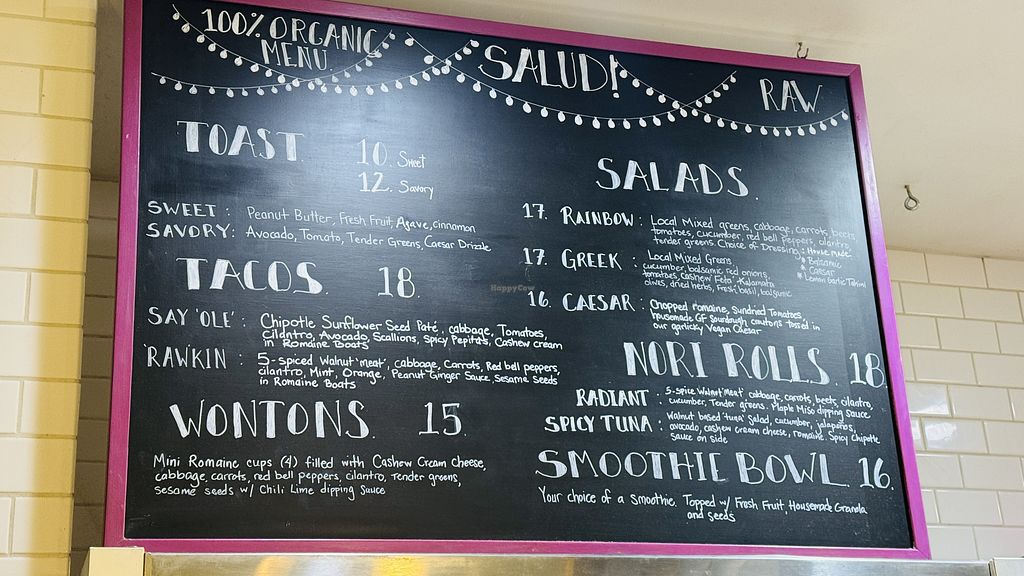 100% ORGANIC
MENU
SALUD!
RAW
TOAST
10. Sweet
12. Savory
SWEET: Peanut Butter, Fresh Fruit, Agave, cinnamon
SAVORY: Avocado, Tomato, Tender Greens, Caesar Drizzle
TACOS 18
SAY 'OLE': Chipotle Sunflower Seed Paté, cabbage, Tomatoes,
cilantro, Avocado, Scallions, Spicy Pepitas, Cashew cream
in Romaine Boats
RAWKIN: 5-spiced Walnut 'meat', cabbage, Carrots, Red bell peppers,
cilantro, Mint, Orange, Peanut Ginger Sauce, Sesame Seeds
in Romaine Boats
WONTONS. 15.
Mini Romaine cups (4) filled with Cashew Cream Cheese,
cabbage, carrots, red bell peppers, cilantro, tender greens,
sesame seeds w/ Chili Lime dipping Sauce
SALADS.
17. RAINBOW: Local Mixed greens, cabbage, carrots, beets,
tomatoes, cucumber, red bell peppers, cilantro,
tender greens. Choice of Dressing: House made
* Balsamic
* Caesar
* Lemon Garlic Tahini
17. GREEK: Local Mixed Greens
cucumber, balsamic red onions,
tomatoes, Cashew Feta, Kalamata
olives, dried herbs, fresh basil, balsamic
16. CAESAR: Chopped romaine, Sundried Tomatoes,
housemade GF sourdough croutons tossed in
our garlicky Vegan Caesar
NORI ROLLS. 18
RADIANT: 5-spice Walnut 'Meat' cabbage, carrots, beets, cilantro,
cucumber, Tender greens. Maple Miso dipping sauce
SPICY TUNA: Walnut based 'tuna' Salad, cucumber, jalapeños,
avocado, cashew cream cheese, romaine. Spicy Chipotle
Sauce on side
SMOOTHIE BOWL. 16.
Your choice of a Smoothie. Topped w/ Fresh Fruit, Housemade Granola
and seeds
HappyCow